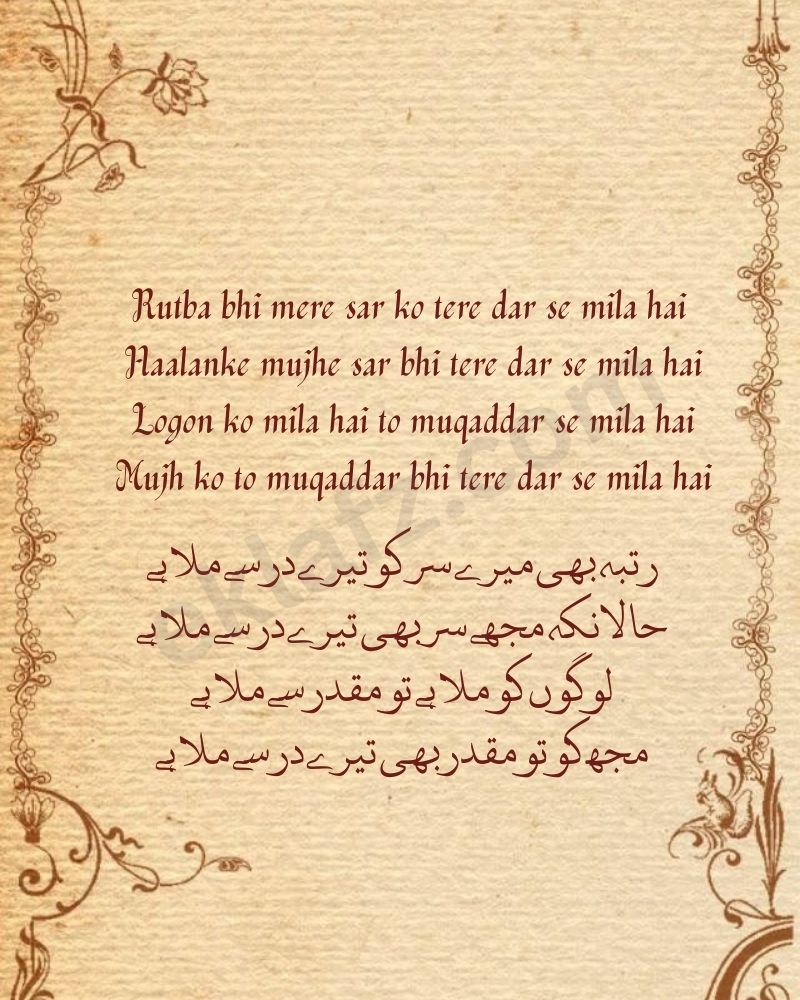 Rutba bhi mere sar ko tere dar se mila hai
Haalanke mujhe sar bhi tere dar se mila hai
Logon ko mila hai to muqaddar se mila hai
Mujh ko to muqaddar bhi tere dar se mila hai
رتبہ بھی میرے سر کو تیرے در سے ملا ہے
حالانکہ مجھے سر بھی تیرے در سے ملا ہے
لوگوں کو ملا ہے تو مقدر سے ملا ہے
مجھ کو تو مقدر بھی تیرے در سے ملا ہے